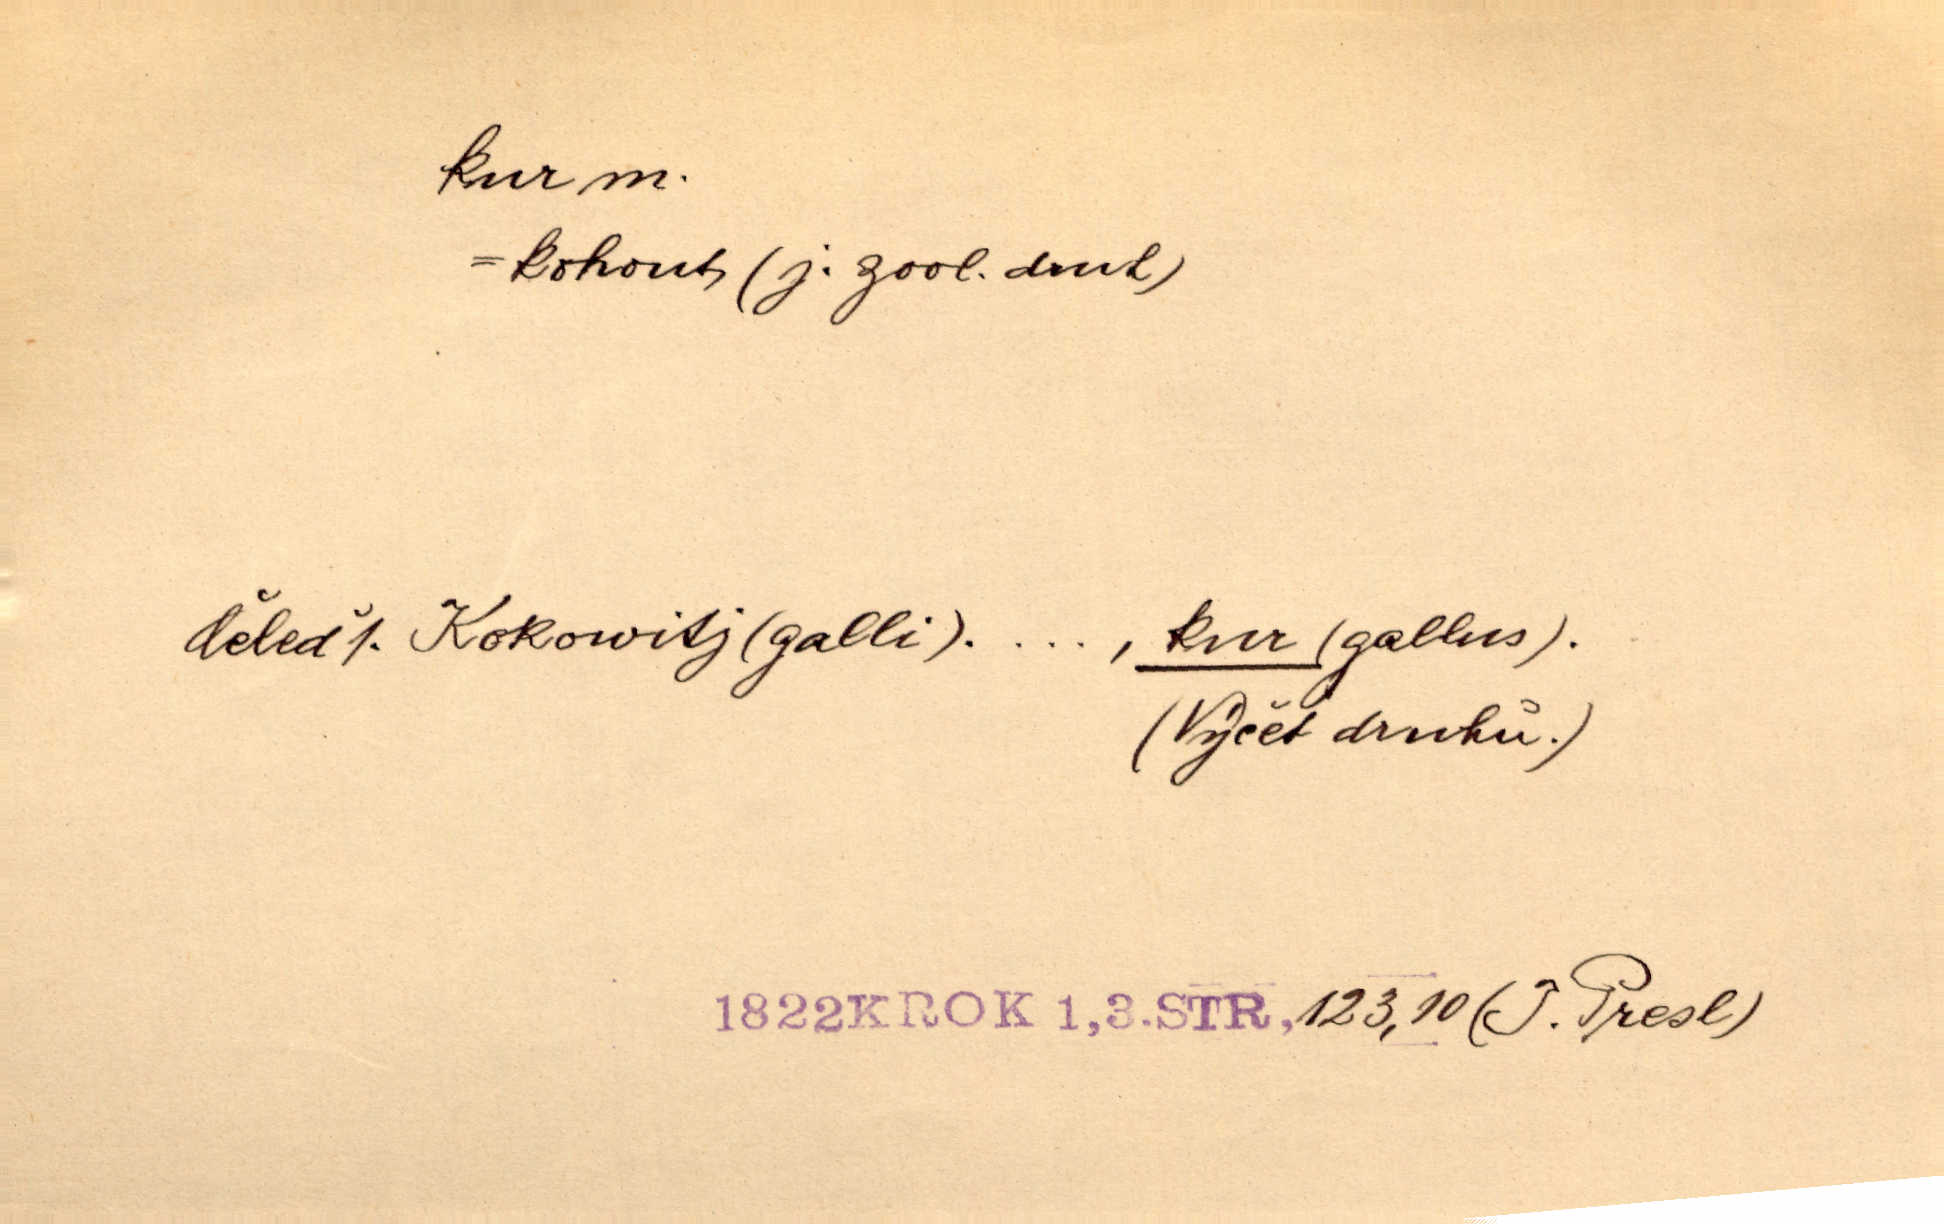 kur m.
= kohout (j. zool. druh)
čeleď 1. Kokowitj (galli). ...., kur (gallus).
(Výčet druhů.)
1822 KROK 1,3.STR, 123,10 (J. Presl)